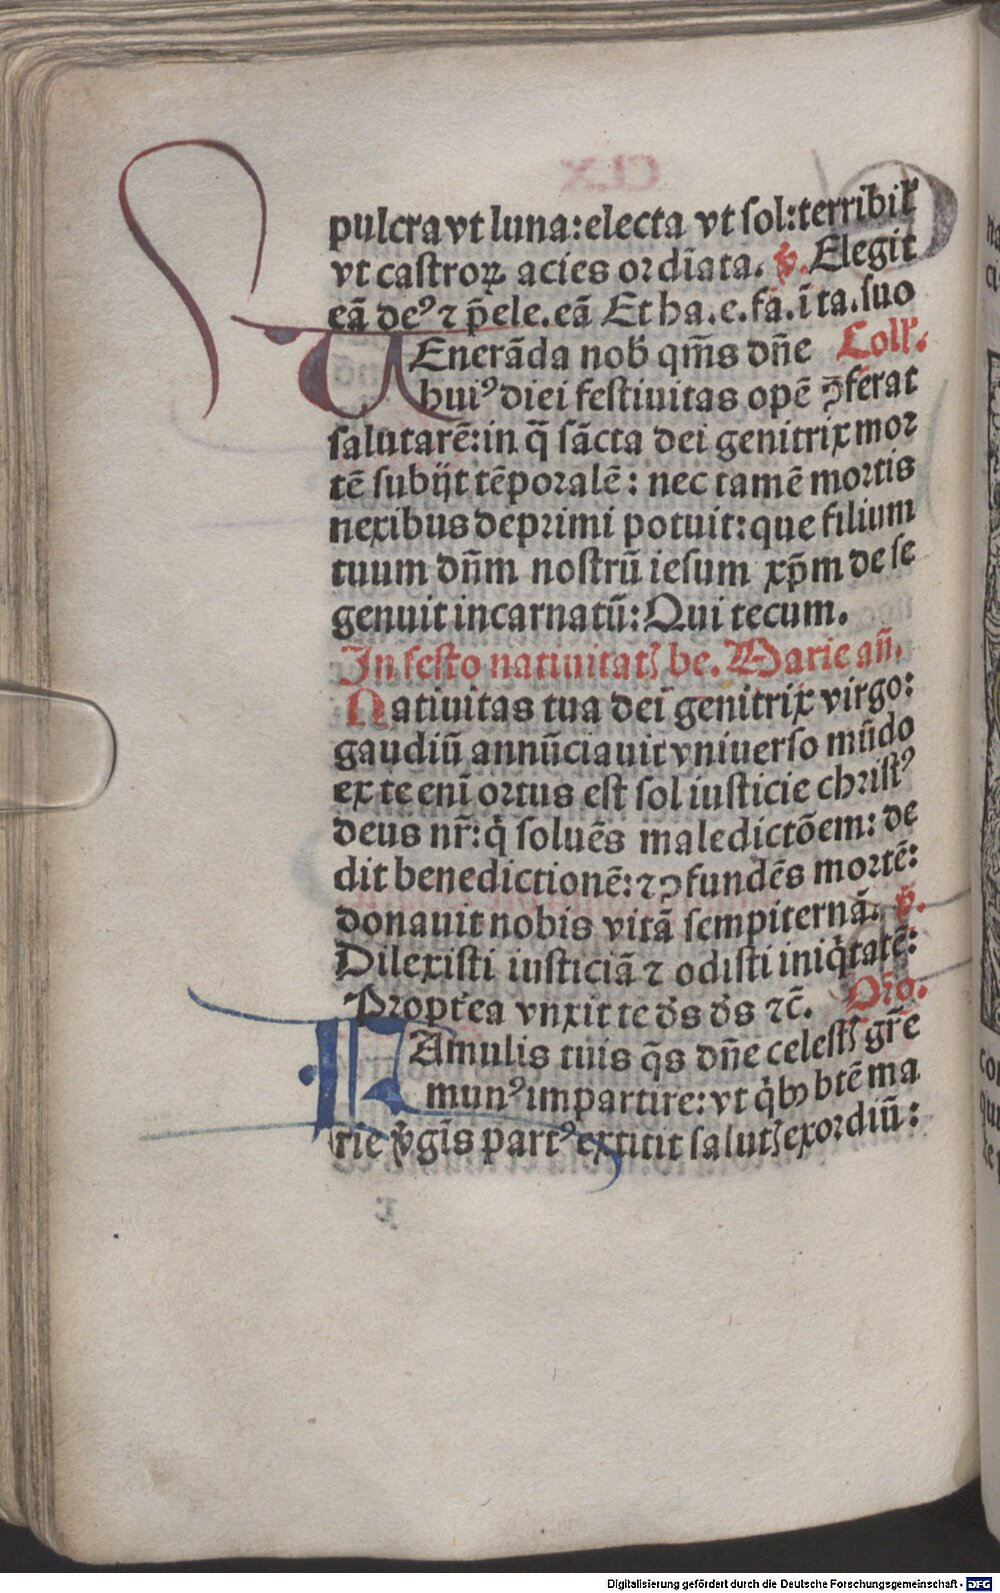 pulcra vt luna: electa vt sol: terribil'
vt castroꝝ acies ordīata. ℣. Elegit
eā deꝰ ⁊ p̄ele. eā Et ha. e. fa. ī ta. suo
UEnerāda nob̄ qm̄s dn̄e Coll'.
huiꝰ diei festiuitas opē ꝯferat
salutarē: in q̄ sācta dei genitrix mor
tē subijt tēporalē: nec tamē mortis
nexibus deprimi potuit: que filium
tuum dn̄m nostrū iesum xp̄m de se
genuit incarnatū: Qui tecum.
In festo natiuitatꝭ be. Marie an̄.
Natiuitas tua dei genitrix virgo:
gaudiū annūciauit vniuerso mūdo
ex te enī ortus est sol iusticie christꝰ
deus nr̄: q̇ soluēs maledictōem: de
dit benedictionē: ⁊ ꝯfundēs mortē:
donauit nobis vitā sempiternā. ℣.
Dilexisti iusticiā ⁊ odisti iniq̇tatē:
Propt'ea vnxit te d̄s d̄s ⁊c̄. Or̄o.
FAmulis tuis q̄s dn̄e celestꝭ gr̄e
munꝰ impartire: vt q̇bꝫ btē ma
rie v̄gīs partꝰ extitit salutꝭ exordiū:
Digitalisierung gefördert durch die Deutsche Forschungsgemeinschaft - DFG